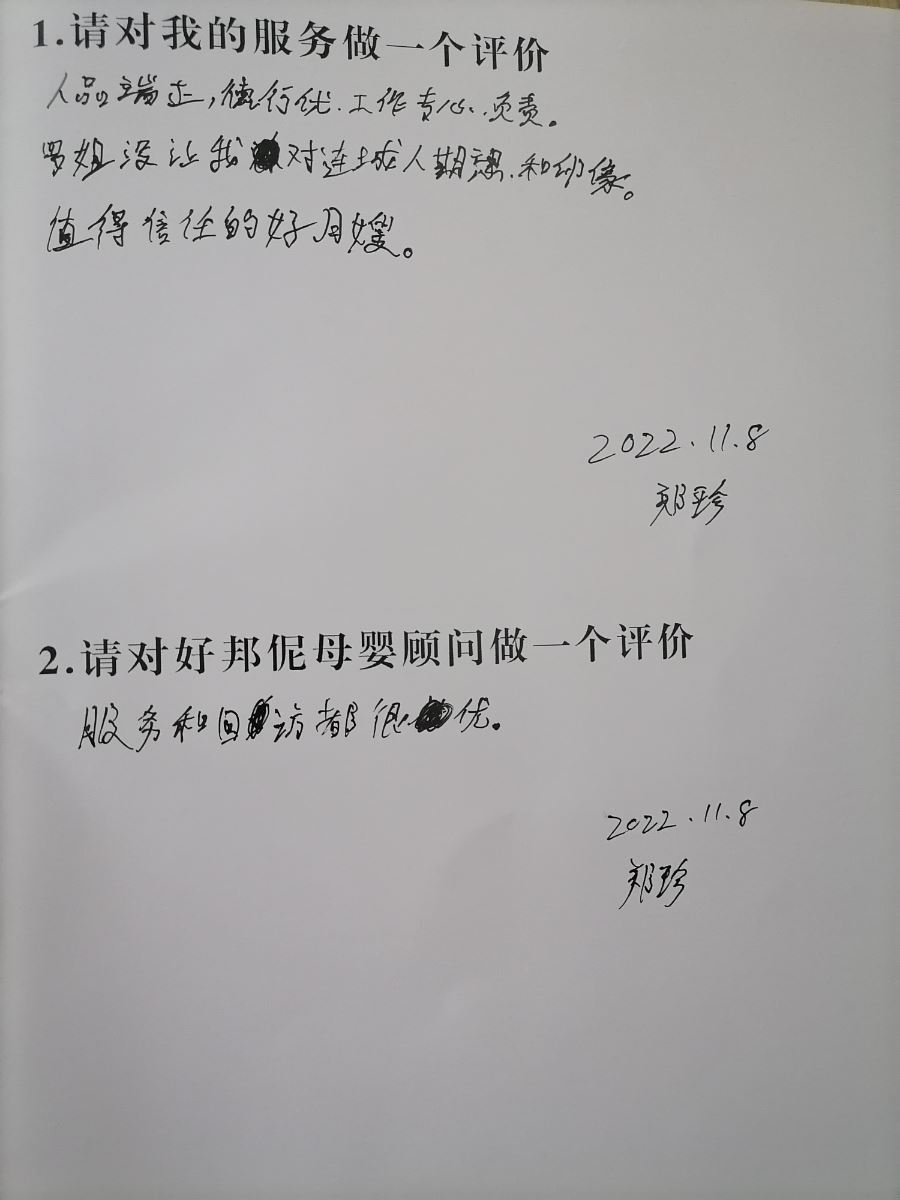 1.请对我的服务做一个评价
人品端正,德行优.工作专心.负责。
罗姐没让我对连城人期望.和印像。
值得信任的好月嫂。
2022.11.8
郑珍
2.请对好邦伲母婴顾问做一个评价
服务和回访都很优。
2022.11.8
郑珍